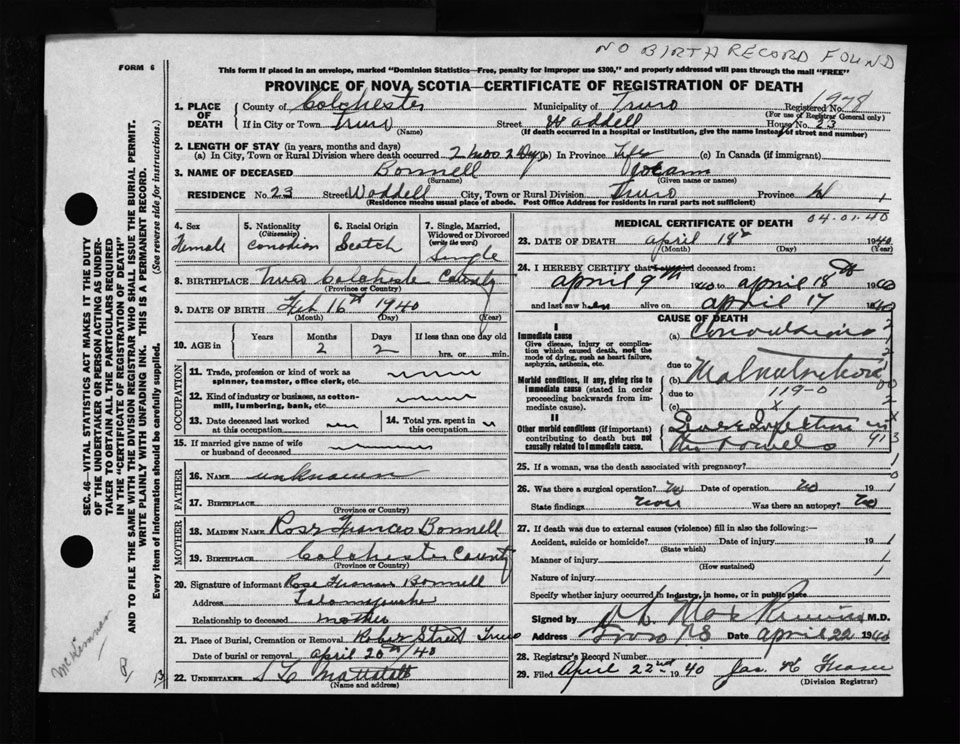 NO BIRTH RECORD FOUND
FORM 6
This form if placed in an envelope, marked "Dominion Statistics—Free, penalty for improper use $300," and properly addressed will pass through the mail "FREE"
PROVINCE OF NOVA SCOTIA—CERTIFICATE OF REGISTRATION OF DEATH
1. PLACE OF DEATH
County of Colchester Municipality of Truro Registered No. 1978
(For use of Registrar General only)
If in City or Town Truro Street Waddell House No. 23
(Name) (If death occurred in a hospital or institution, give the name instead of street and number)
2. LENGTH OF STAY (in years, months and days)
(a) In City, Town or Rural Division where death occurred 2 mos 2 Dys (b) In Province Life (c) In Canada (if immigrant)
3. NAME OF DECEASED Bonnell
(Surname) (Given name or names)
RESIDENCE No. 23 Street Waddell City, Town or Rural Division Truro Province
(Residence means usual place of abode. Post Office Address for residents in rural parts not sufficient)
4. Sex Female
5. Nationality (Citizenship) Canadian
6. Racial Origin Scotch
7. Single, Married, Widowed or Divorced (write the word) Single
8. BIRTHPLACE Truro Colchester County
(Province or Country)
9. DATE OF BIRTH Feb 16th 1940
(Month) (Day) (Year)
10. AGE in Years Months 2 Days 2 If less than one day old hrs. or min.
OCCUPATION
11. Trade, profession or kind of work as spinner, teamster, office clerk, etc.
12. Kind of industry or business, as cotton-mill, lumbering, bank, etc.
13. Date deceased last worked at this occupation
14. Total yrs. spent in this occupation
15. If married give name of wife or husband of deceased
FATHER
16. NAME unknown
17. BIRTHPLACE
(Province or Country)
MOTHER
18. MAIDEN NAME Rose Frances Bonnell
19. BIRTHPLACE Colchester County
(Province or Country)
20. Signature of informant Rose Frances Bonnell
Address
Relationship to deceased mother
21. Place of Burial, Cremation or Removal Robie Street Truro
Date of burial or removal April 20th/40
22. UNDERTAKER
(Name and address)
MEDICAL CERTIFICATE OF DEATH
04.01.40
23. DATE OF DEATH April 18th 1940
(Month) (Day) (Year)
24. I HEREBY CERTIFY that I attended deceased from:
April 9th 1940 to April 18th 1940
and last saw her alive on April 17 1940
CAUSE OF DEATH
I
Immediate cause
Give disease, injury or complication which caused death, not the mode of dying, such as heart failure, asphyxia, asthenia, etc.
(a) Convulsions
due to
Morbid conditions, if any, giving rise to immediate cause (stated in order proceeding backwards from immediate cause).
(b) Malnutrition
due to 119-0
(c)
II
Other morbid conditions (if important) contributing to death but not causally related to immediate cause.
Severe Infection in the bowels
25. If a woman, was the death associated with pregnancy?
26. Was there a surgical operation? No Date of operation No 19
State findings Was there an autopsy? No
27. If death was due to external causes (violence) fill in also the following:—
Accident, suicide or homicide? Date of injury 19
(State which)
Manner of injury
(How sustained)
Nature of injury
Specify whether injury occurred in industry, in home, or in public place
Signed by M.D.
Address Truro NS Date April 22 1940
28. Registrar's Record Number
29. Filed April 22nd 1940 Jas. Fraser
(Division Registrar)
SEC. 46—VITAL STATISTICS ACT MAKES IT THE DUTY OF THE UNDERTAKER OR PERSON ACTING AS UNDERTAKER TO OBTAIN ALL THE PARTICULARS REQUIRED IN THE "CERTIFICATE OF REGISTRATION OF DEATH"
AND TO FILE THE SAME WITH THE DIVISION REGISTRAR WHO SHALL ISSUE THE BURIAL PERMIT.
WRITE PLAINLY WITH UNFADING INK. THIS IS A PERMANENT RECORD.
Every item of information should be carefully supplied. (See reverse side for instructions.)